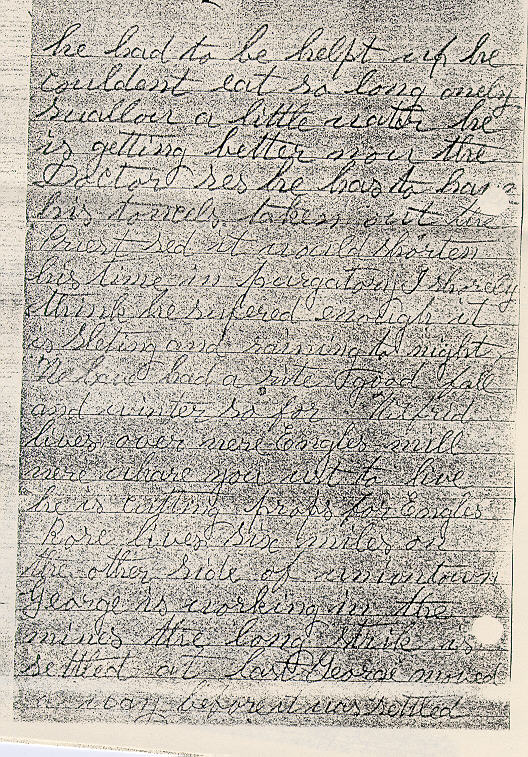 he had to be helpt up he
couldent eat so long onely
swallow a little water he
is getting better now the
Doctor ses he has to have
his toncels taken out the
Priest sed it would shorten
his time in purgatory I shorely
think he sufered enough it
is sleting and raining to night
We have had a rite good fall
and winter so far
lives over nere Engles mill
nere whare you ust to live
he is cutting props for Engles
Rose lives six miles on
the other side of uniontown
George is working in the
mines the long strike is
settled at last George moved
away before it was settled